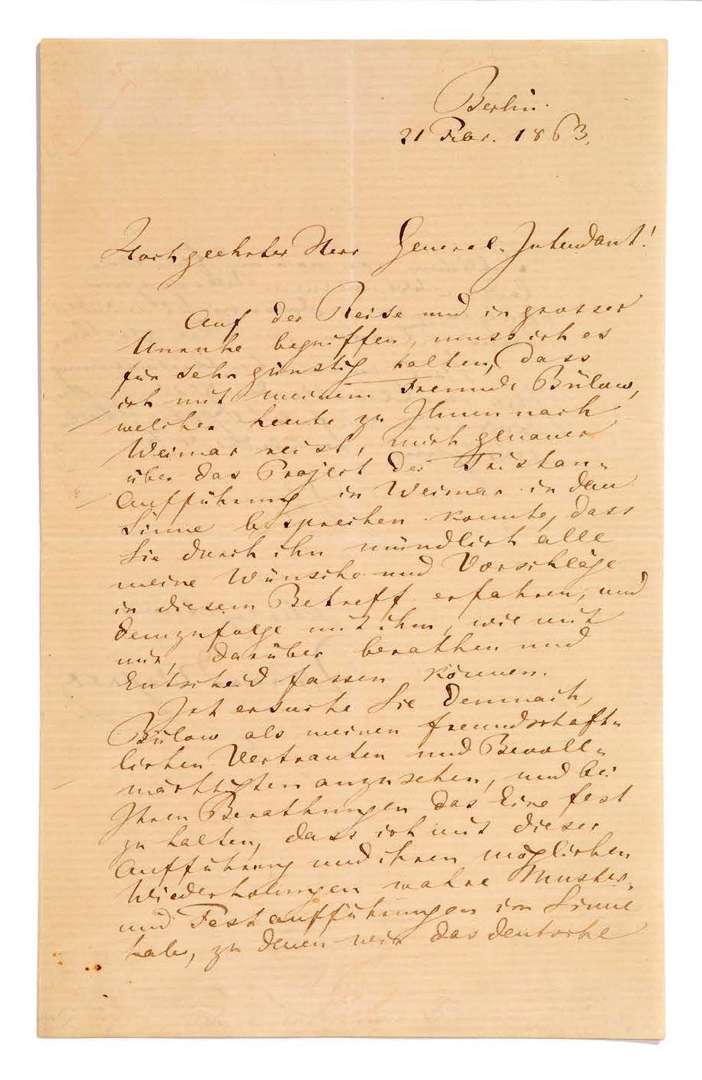 Berlin.
21 Febr. 1863.
Hochgeehrter Herr General-Intendant!
Auf der Reise und in grosser
Unruhe begriffen, muss ich es
für sehr günstig halten, dass
ich mit meinem Freunde Bülow,
welcher heute zu Ihnen nach
Weimar reist, mich genauer
über das Project der Tristan-
Aufführung in Weimar in dem
Sinne besprechen konnte, dass
Sie durch ihn mündlich alle
meine Wünsche und Vorschläge
in diesem Betreff erfahren, und
demzufolge mit ihm, wie mit
mir, darüber berathen und
Entscheid fassen können.
Ich ersuche Sie demnach,
Bülow als meinen freundschaft-
lichen Vertrauten und Bevoll-
mächtigten anzusehen, und bei
Ihren Berathungen das Eine fest
zu halten, dass ich mit dieser
Aufführung und ihren möglichen
Wiederholungen wahre Muster-
und Festaufführungen im Sinne
habe, zu denen wir das deutsche